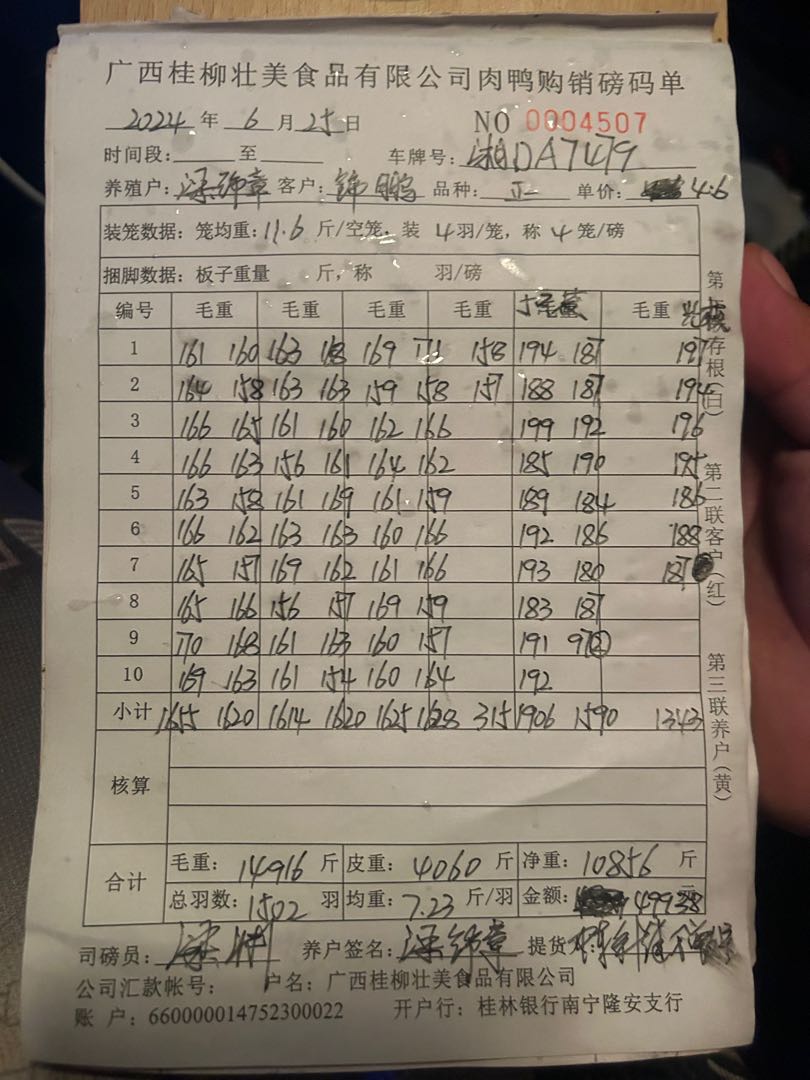 广西桂柳壮美食品有限公司肉鸭购销磅码单
2024 年 6 月 25 日 NO 0004507
时间段: 至 车牌号: 湘DA7479
养殖户: 梁锦章 客户: 锦鹏 品种: 正 单价: 4.6
装笼数据: 笼均重: 11.6 斤/空笼, 装 4 羽/笼, 称 4 笼/磅
捆脚数据: 板子重量 斤, 称 羽/磅
编号 毛重 毛重 毛重 毛重 毛重
1 161 160 163 168 169 171 158 194 187 197
2 164 158 163 163 159 158 157 188 187 194
3 166 165 161 160 162 166 199 192 196
4 166 163 156 161 164 162 185 190 195
5 163 158 161 169 161 159 189 184 186
6 166 162 163 163 160 166 192 186 188
7 165 157 169 162 161 166 193 180 187
8 165 166 156 157 169 159 183 187
9 170 168 161 163 160 157 191 97②
10 169 163 161 154 160 164 192
小计 1655 1620 1614 1620 1625 1628 315 1906 1590 1343
核算
合计 毛重: 14916 斤 皮重: 4060 斤 净重: 10856 斤
总羽数: 1502 羽 均重: 7.23 斤/羽 金额: 49938 元
司磅员: 养户签名: 梁锦章 提货人:
公司汇款帐号: 户名: 广西桂柳壮美食品有限公司
账 户: 660000014752300022 开户行: 桂林银行南宁隆安支行
第一联存根(白)
第二联客户(红)
第三联养户(黄)